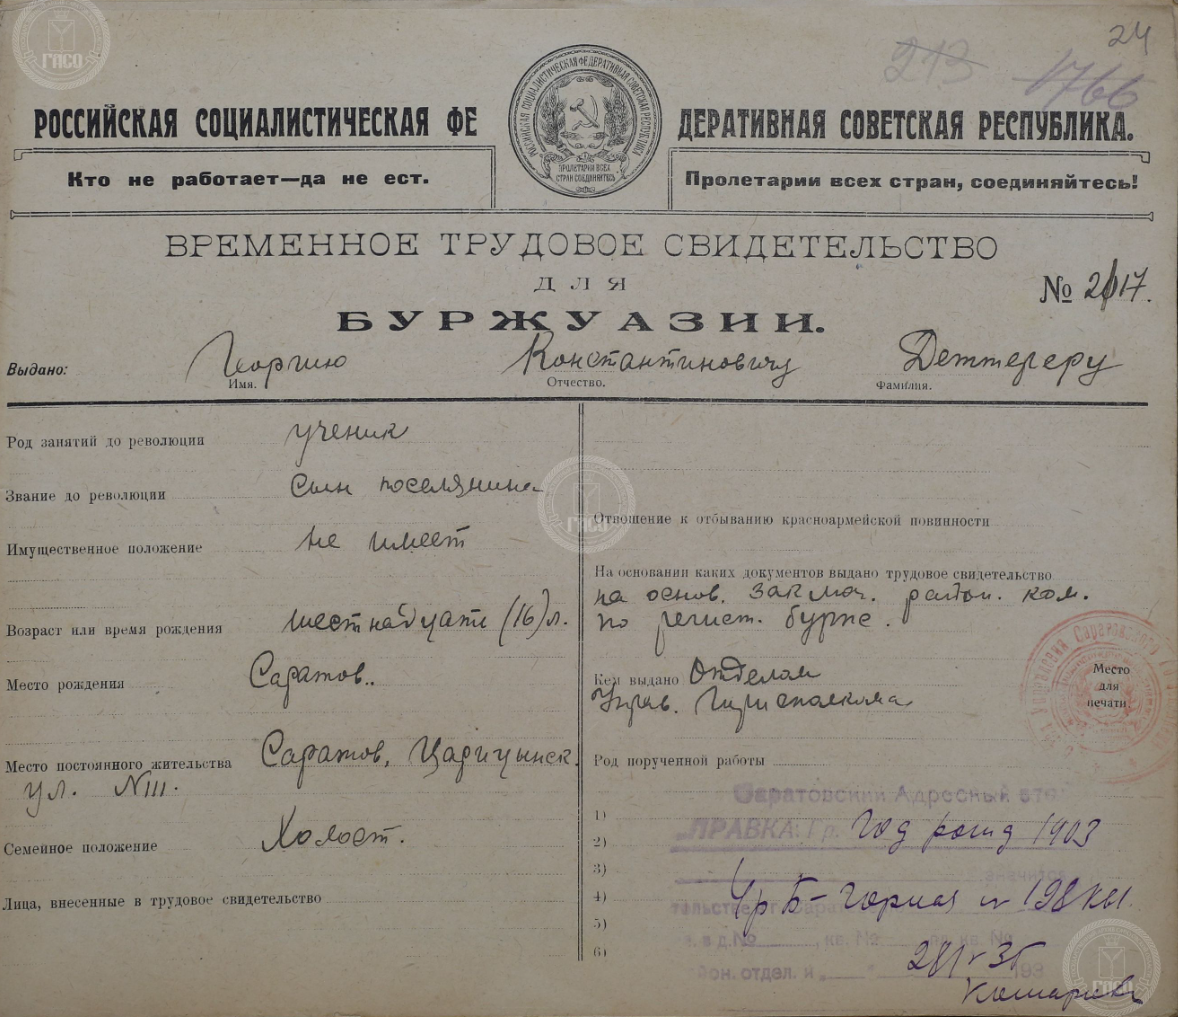 24
213 1766
РОССИЙСКАЯ СОЦИАЛИСТИЧЕСКАЯ ФЕ ДЕРАТИВНАЯ СОВЕТСКАЯ РЕСПУБЛИКА.
РОССИЙСКАЯ СОЦИАЛИСТИЧЕСКАЯ ФЕДЕРАТИВНАЯ СОВЕТСКАЯ РЕСПУБЛИКА
ПРОЛЕТАРИИ ВСЕХ
СТРАН СОЕДИНЯЙТЕСЬ
Кто не работает—да не ест. Пролетарии всех стран, соединяйтесь!
ВРЕМЕННОЕ ТРУДОВОЕ СВИДЕТЕЛЬСТВО
ДЛЯ
№ 2117.
БУРЖУАЗИИ.
Выдано: Георгию Константиновичу Деттереру
Имя. Отчество. Фамилия.
Род занятий до революции ученик
Звание до революции сын поселянина
Имущественное положение не имеет
Возраст или время рождения шестнадцати (16) л.
Место рождения Саратов.
Место постоянного жительства Саратов, Царицынск.
ул. №111.
Семейное положение Холост.
Лица, внесенные в трудовое свидетельство
Отношение к отбыванию красноармейской повинности
На основании каких документов выдано трудовое свидетельство
на основ. заключ. район. ком.
по регист. бурж.
Кем выдано Отделом
Управ. Горисполкома
Место
для
печати
Род порученной работы
Саратовский Адресный сто
1)
2) ПРАВКА: Гр. Год рожд 1903
3)
4) Б-Горная № 198 кв1.
5) в д.№ , кв. №
6) йон. отдел. и 193
ГАСО
ГАСО